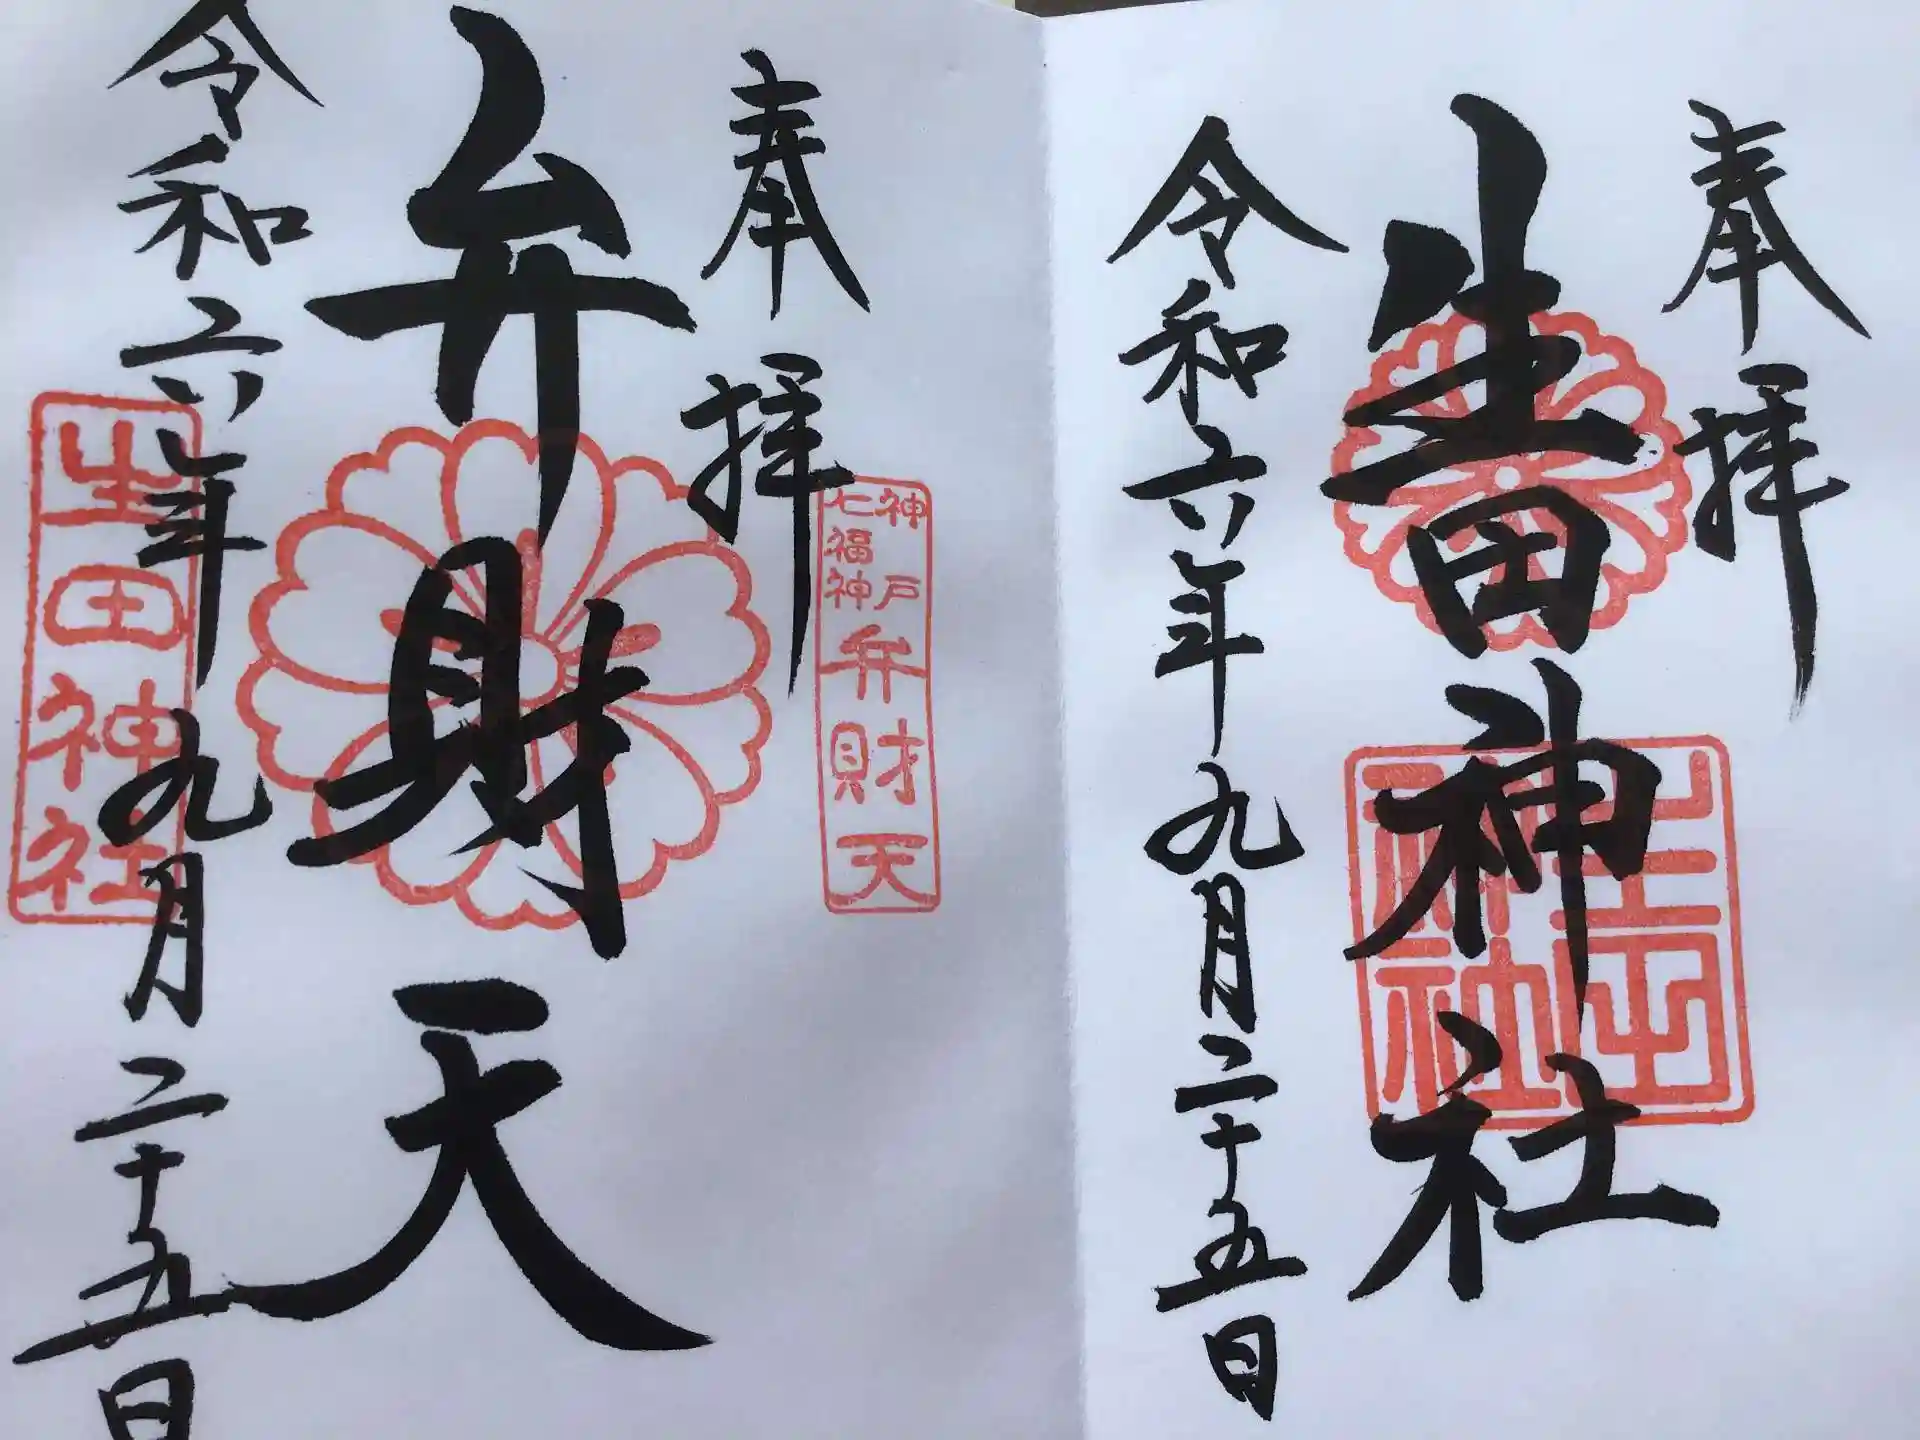 奉拝
生田神社
生田神社
令和六年九月二十五日
奉拝
神戸七福神
弁財天
弁財天
令和六年九月二十五日
生田神社